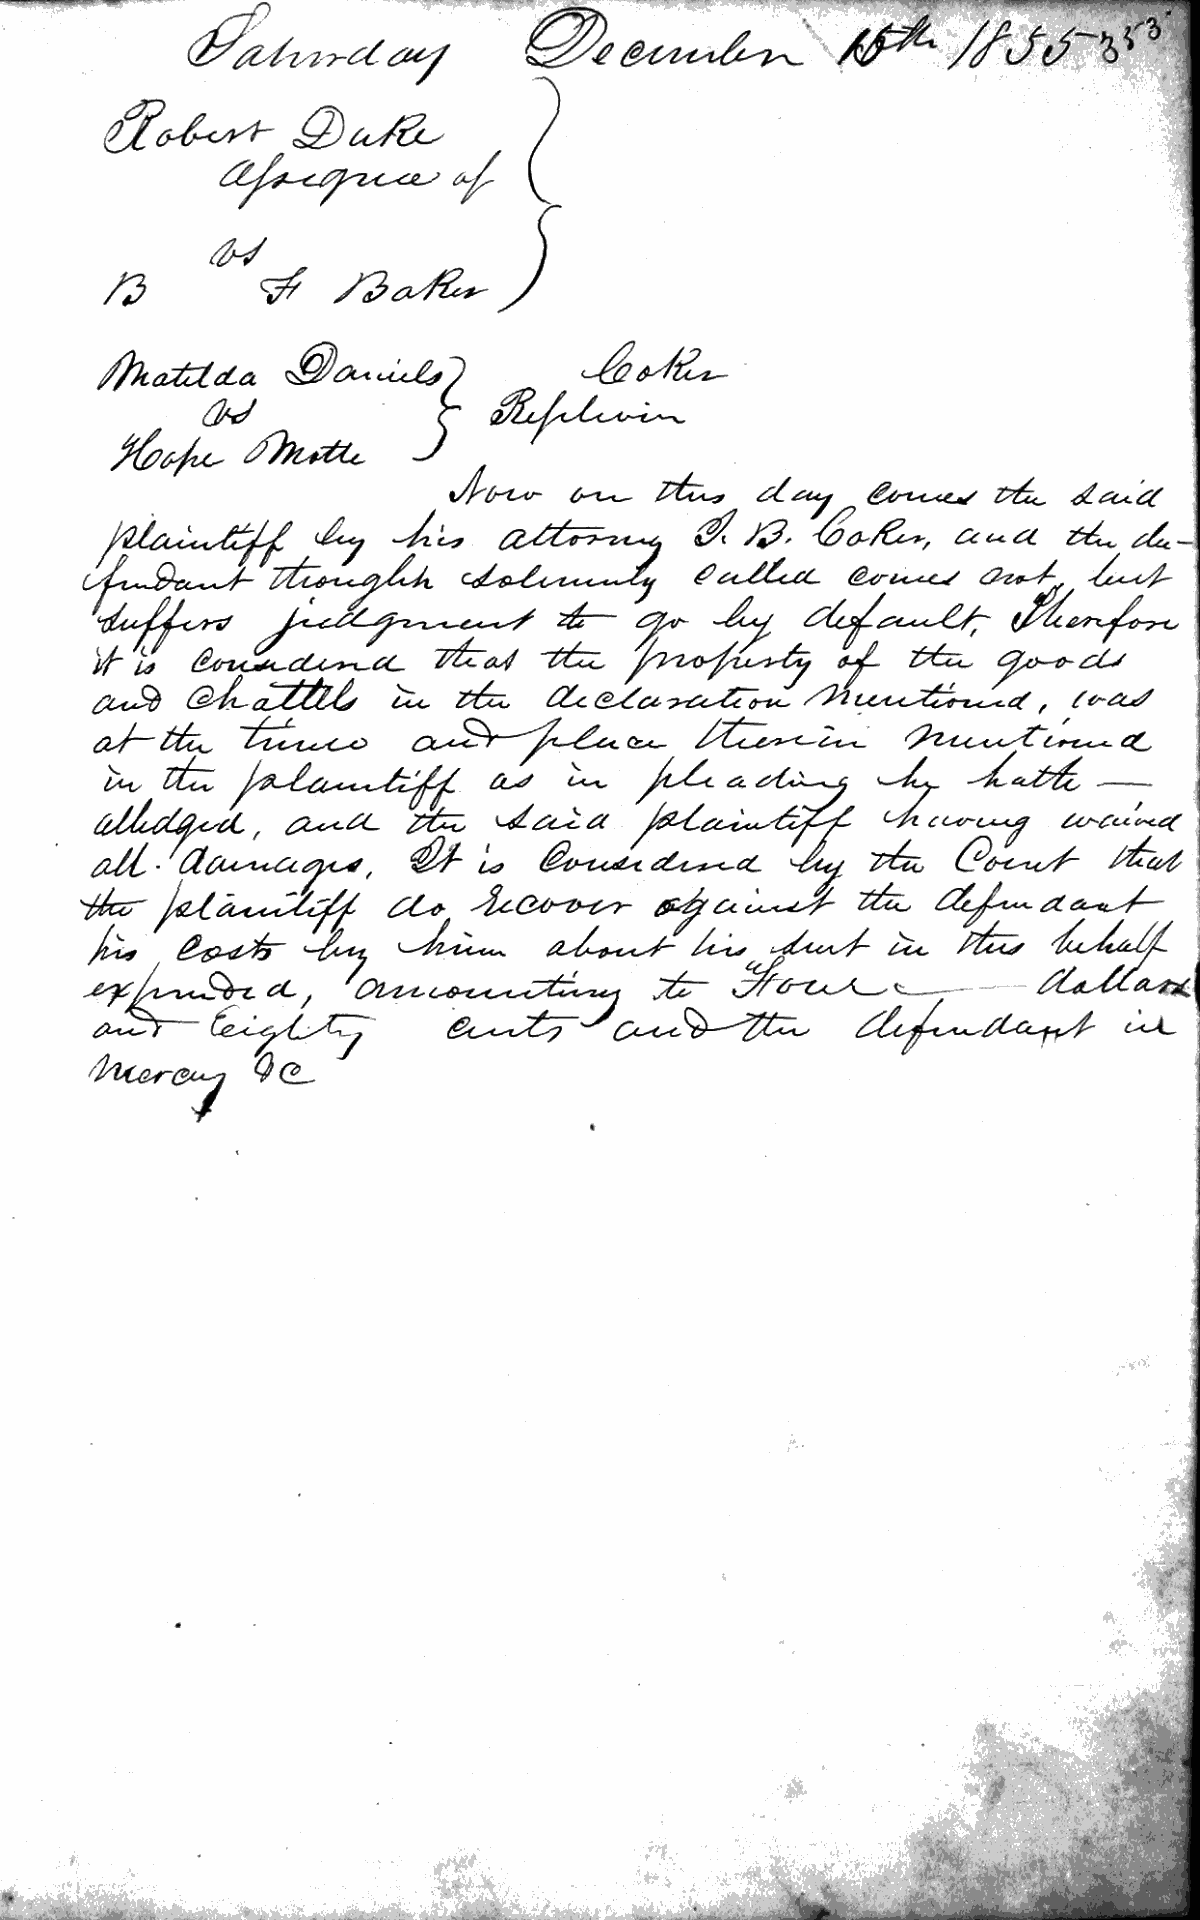 Saturday December 15th 1855 353
Robert Duke
Assignee of
vs
B F Baker
Matilda Daniels Coker
vs Replevin
Hope Motte
Now on this day comes the said
plaintiff by his attorney I. B. Coker, and the de-
fendant thoughh solemnly called comes not, but
suffers judgment to go by default, Therefore
it is considered that the property of the goods
and chattels in the declaration mentioned, was
at the time and place therein mentioned
in the plaintiff as in pleading he hath —
alledged, and the said plaintiff having waived
all damages, It is Considered by the Court that
the plaintiff do recover against the defendant
his costs by him about his suit in this behalf
expended, amounting to Four — dollars
and Eighty cents and the defendant in
mercy &c